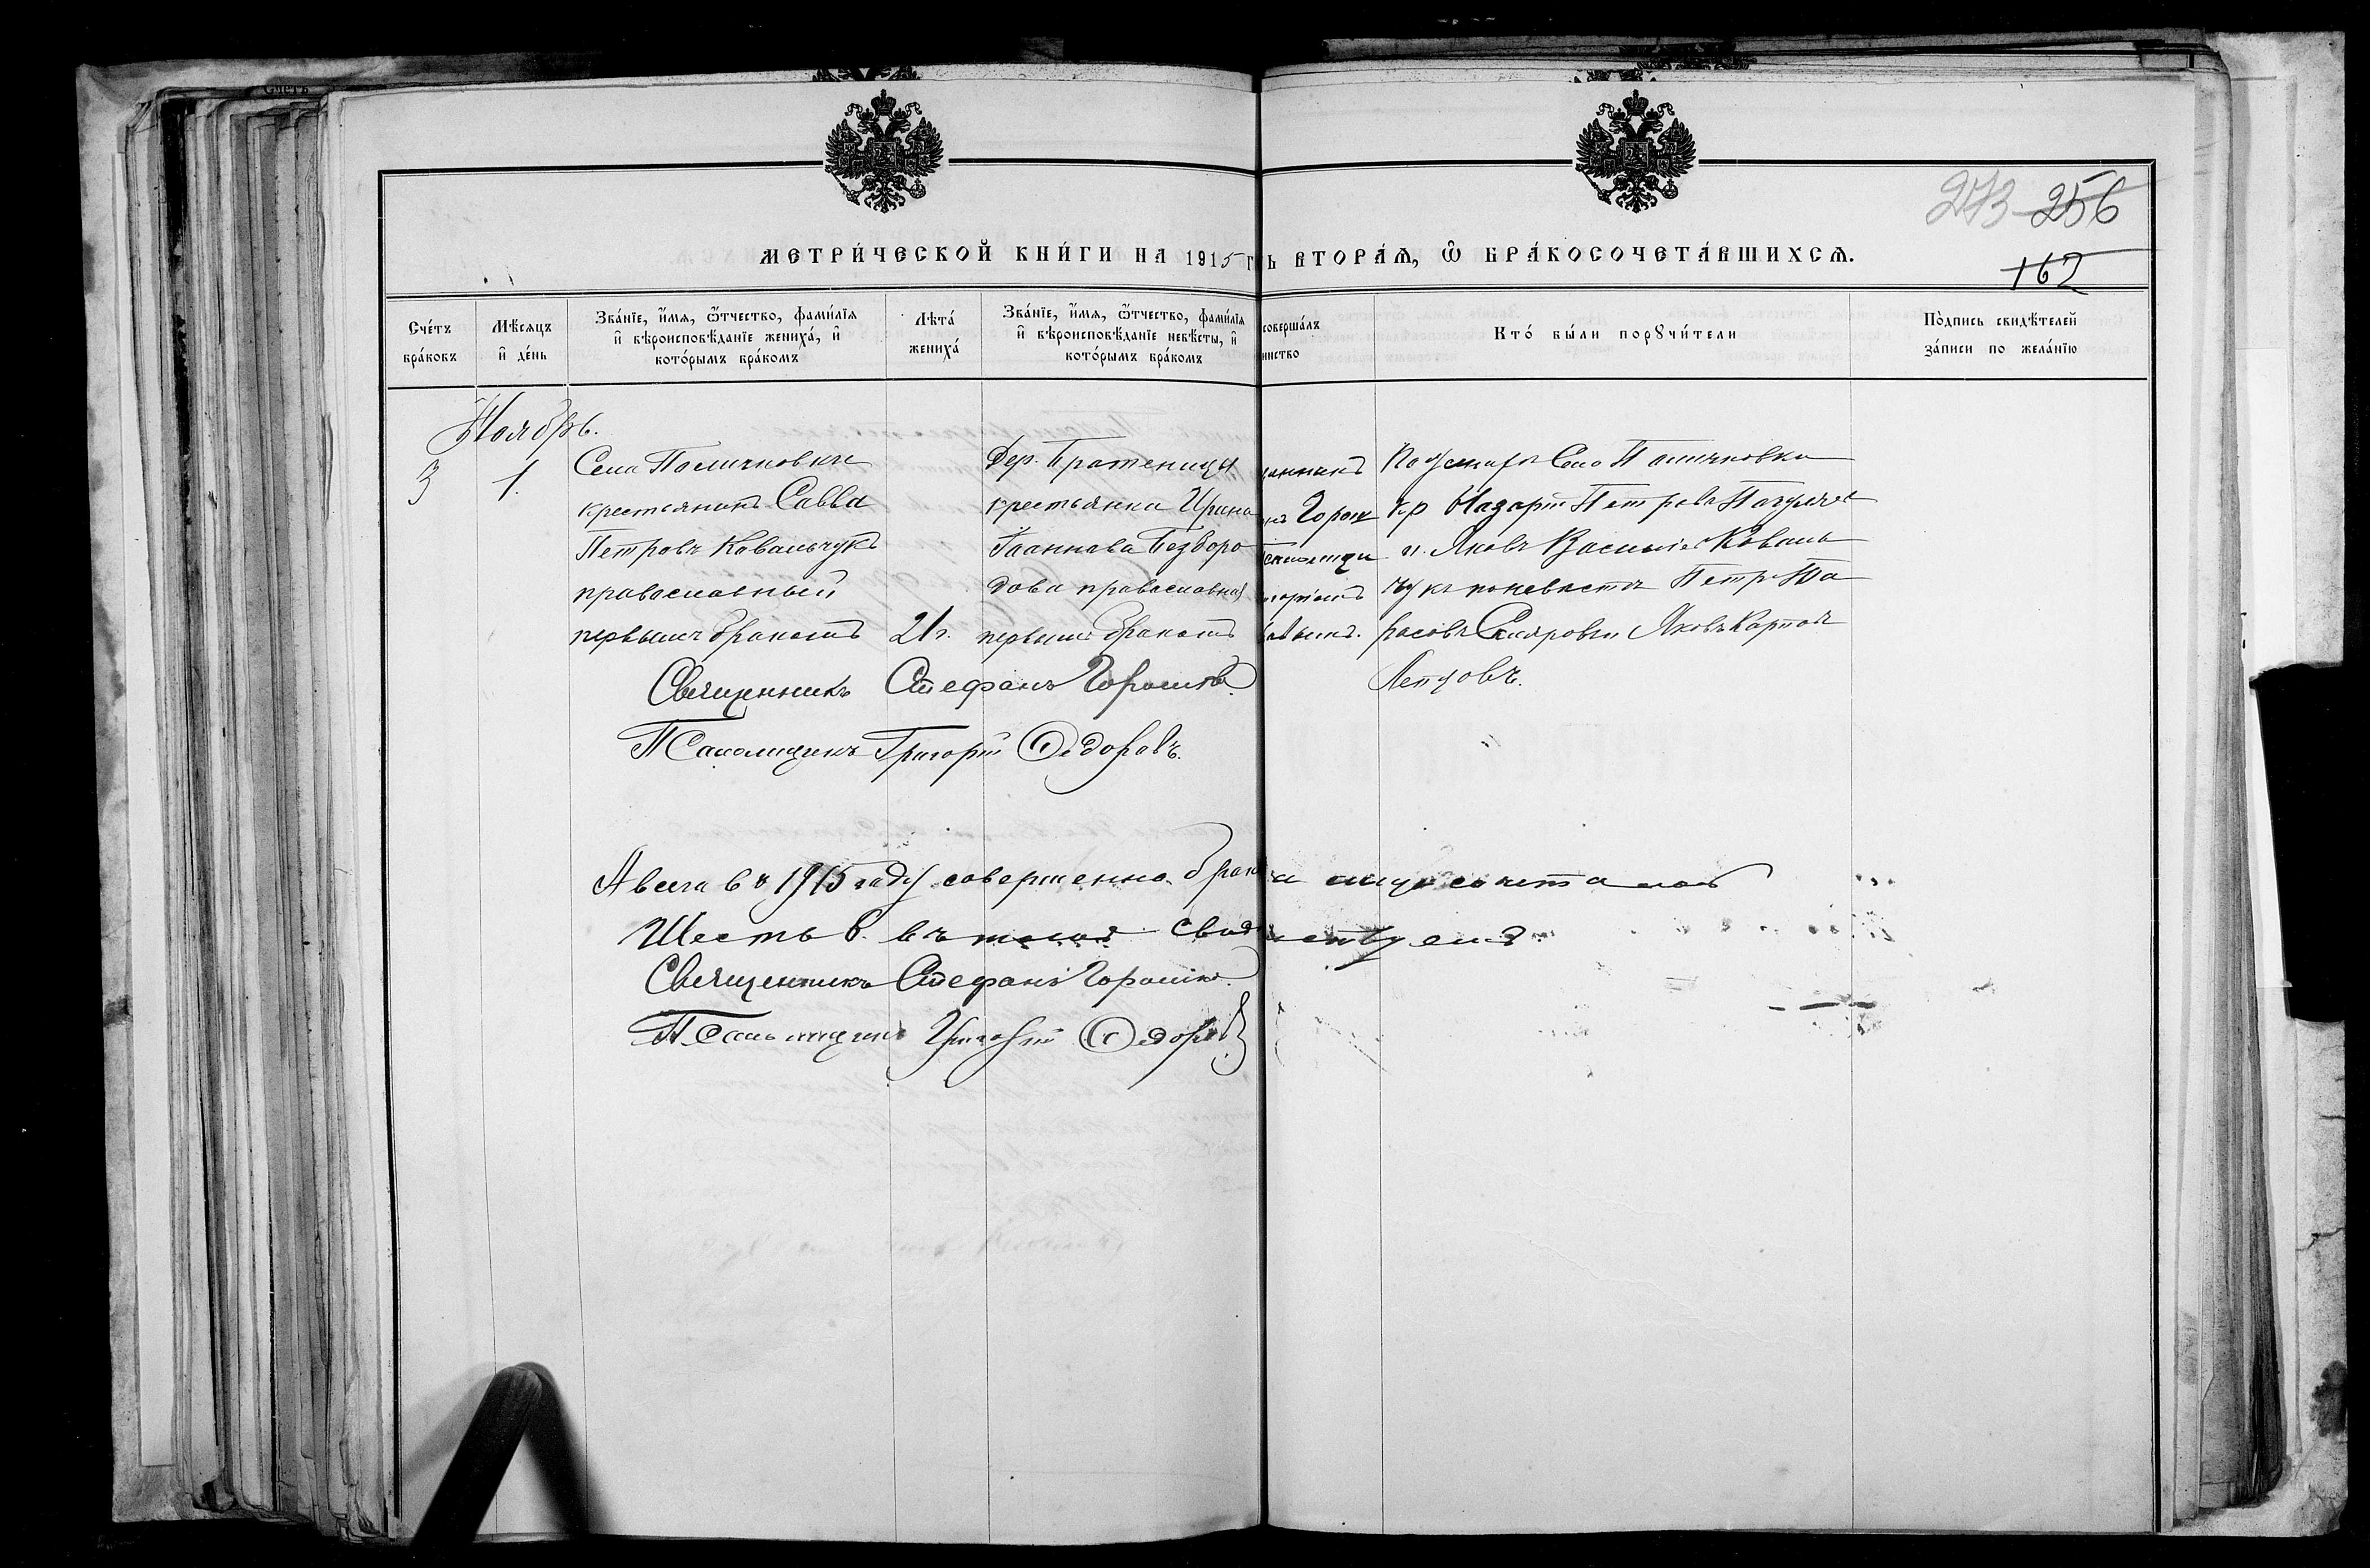 273 256
162
МЕТРИ́ЧЕСКОЙ КНИ́ГИ НА 1915 г ь ВТОРА́Ѧ, Ѿ БРА́КОСОЧЕТА́ВШИХСѦ.
Сче́тъ бра́ковъ
Мѣ́сяцъ и҆ де́нь
Зва́нїе, и҆́мѧ, ѻ҆́тчество, фами́лїѧ и҆ вѣроисповѣ́данїе жениха́, и҆ кото́рымъ бра́комъ
Лѣта́ жениха́
Зва́нїе, и҆́мѧ, ѻ҆́тчество, фами́лїѧ и҆ вѣроисповѣ́данїе невѣ́сты, и҆ кото́рымъ бра́комъ
соверша́лъ инство
Кто́ бы́ли порꙋчи́тели
По́дпись свидѣ́телей за́писи по жела́нїю
Ноябрь.
3
1.
Села
крестьянинъ Савва
Петровъ Ковальчукъ
православный
первымъ бракомъ
21 г.
Дер. Братеницы
крестьянка Ирина
Іоаннова Безборо
дова православная
первымъ бракомъ
щенникъ
нъ Горош
горіемъ
По женихѣ Село
кр Назарій Петровъ
и. Яковъ Василіев Коваль
чукъ по невѣстѣ Петръ Та
расовъ Яковъ Карповъ
Священникъ Стефанъ
Псаломщикъ Григорій Ѳедоровъ.
А всего въ 1915 году совершенно брак
Шесть 6. въ
Священникъ Стефанъ
Псаломщикъ Григорій Ѳедоровъ